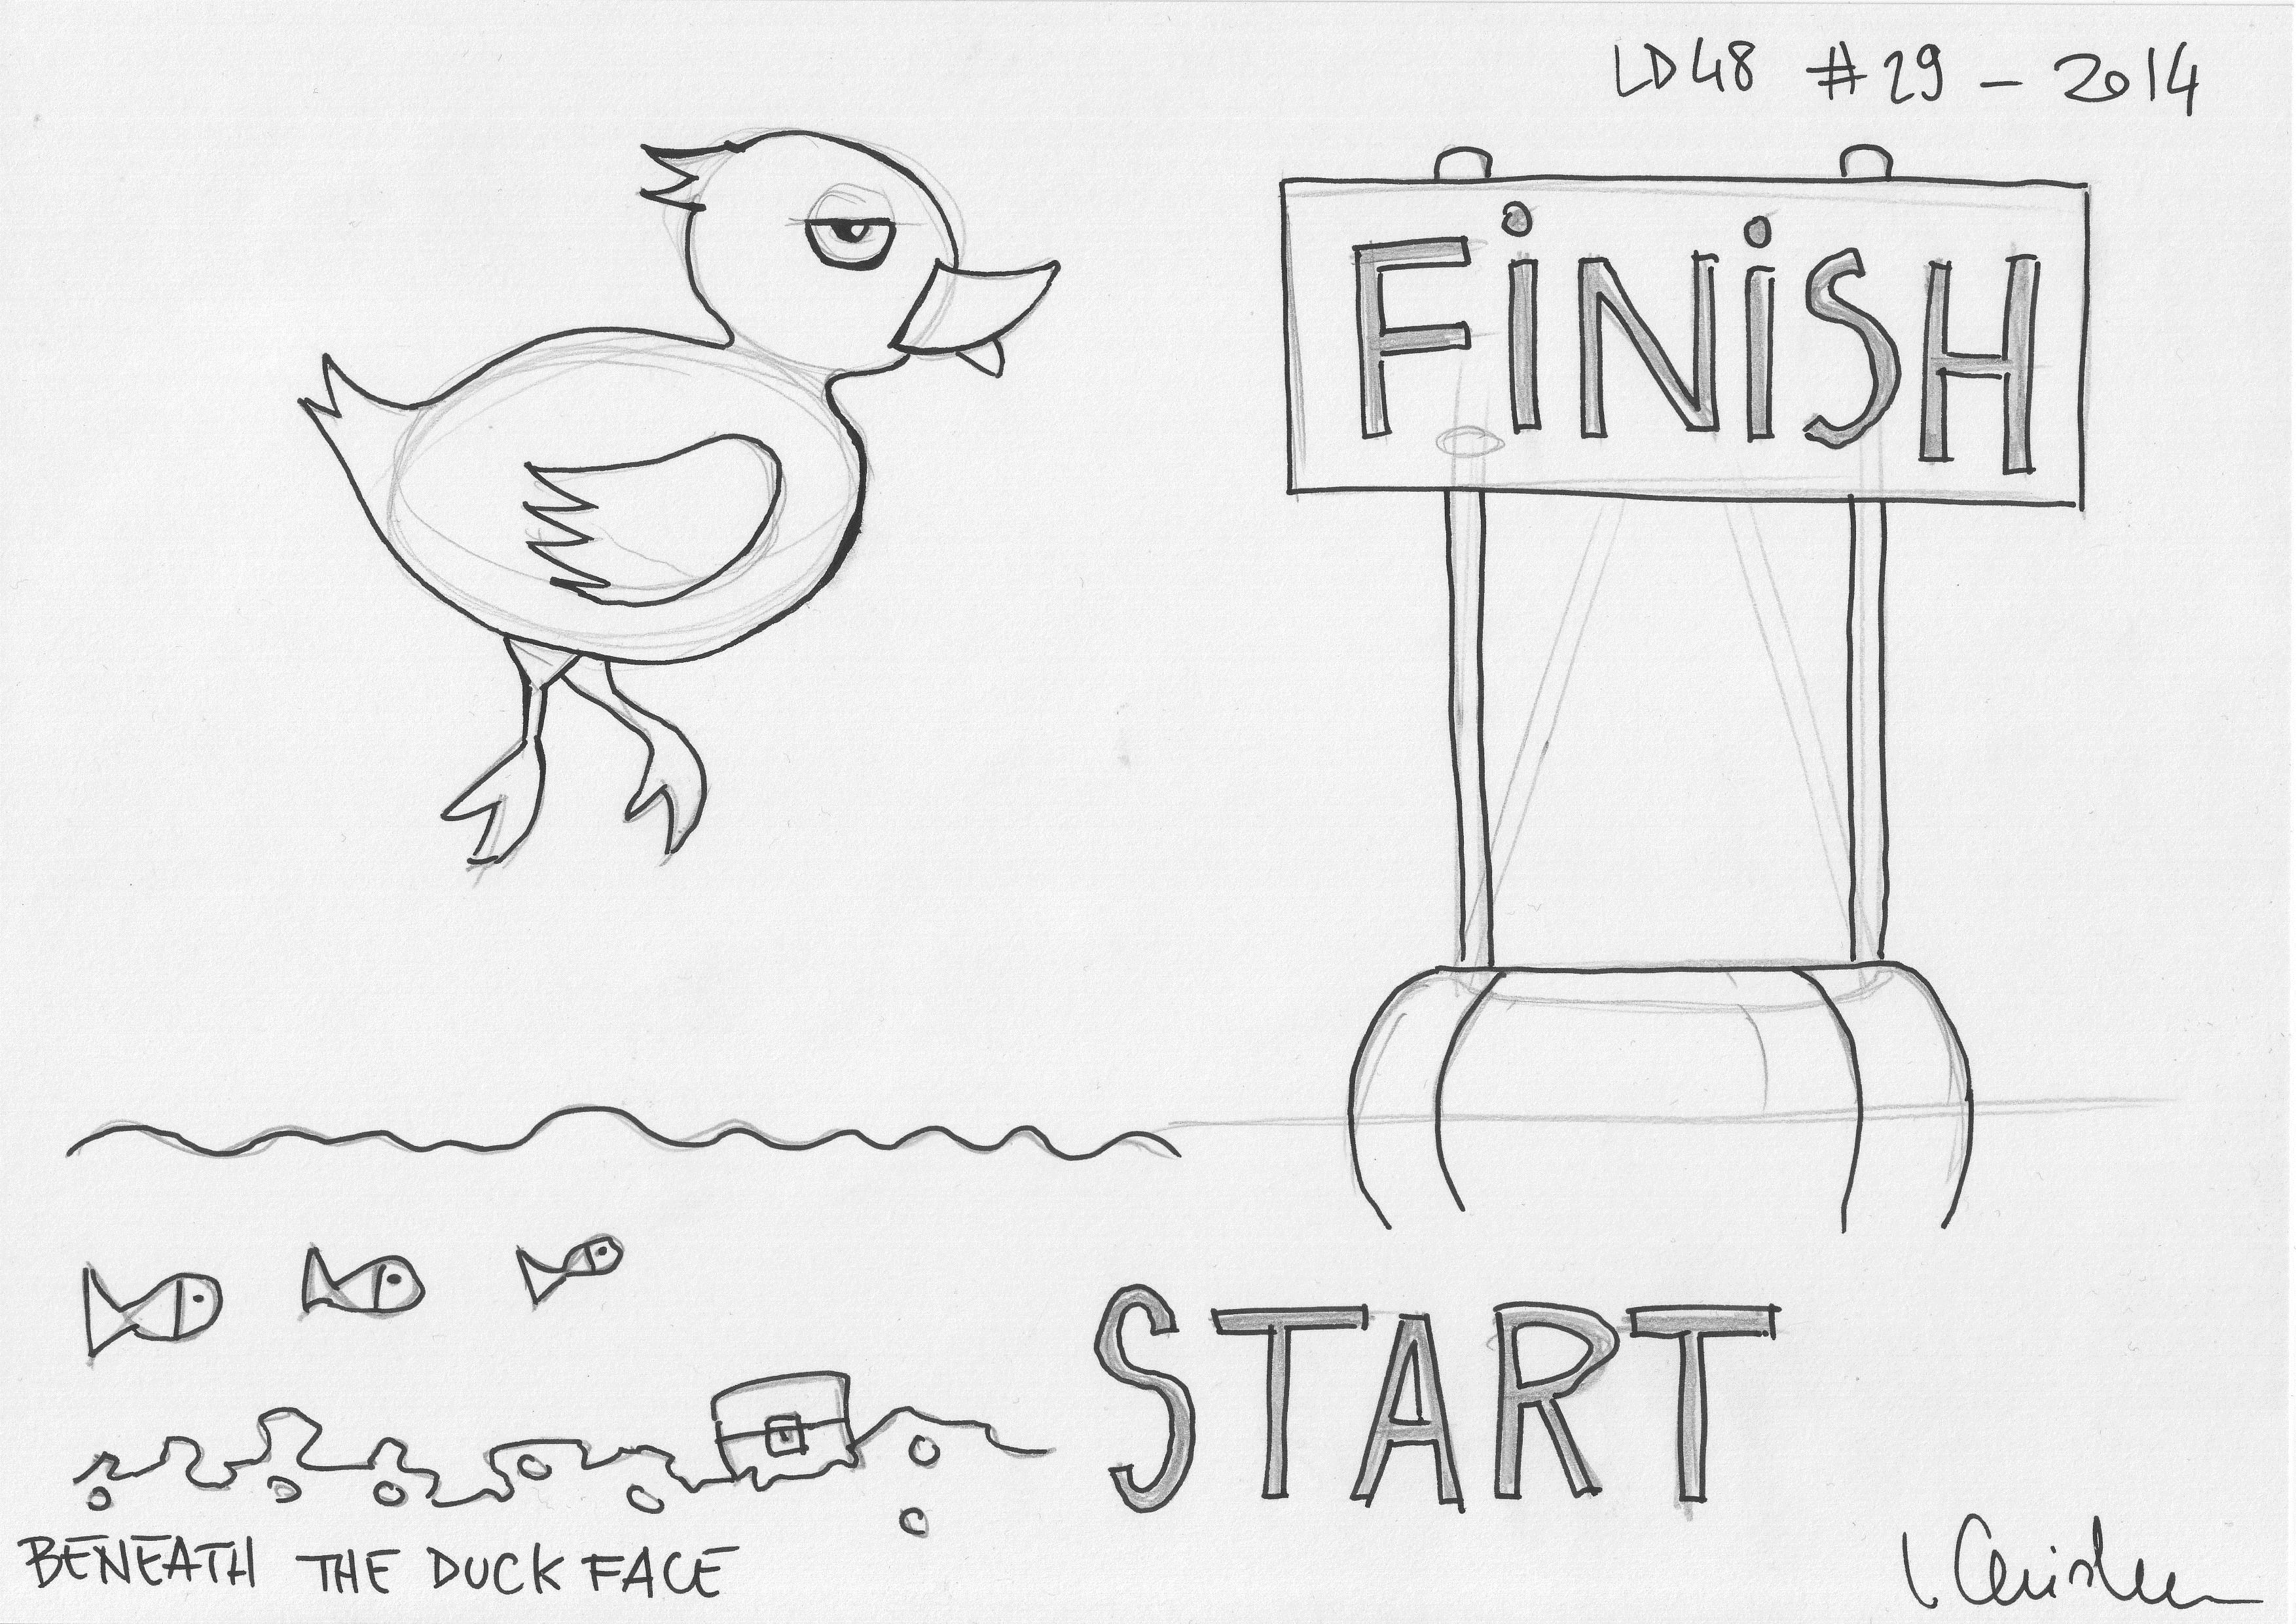 LD48 #29 - 2014
FiNiSH
START
BENEATH THE DUCK FACE